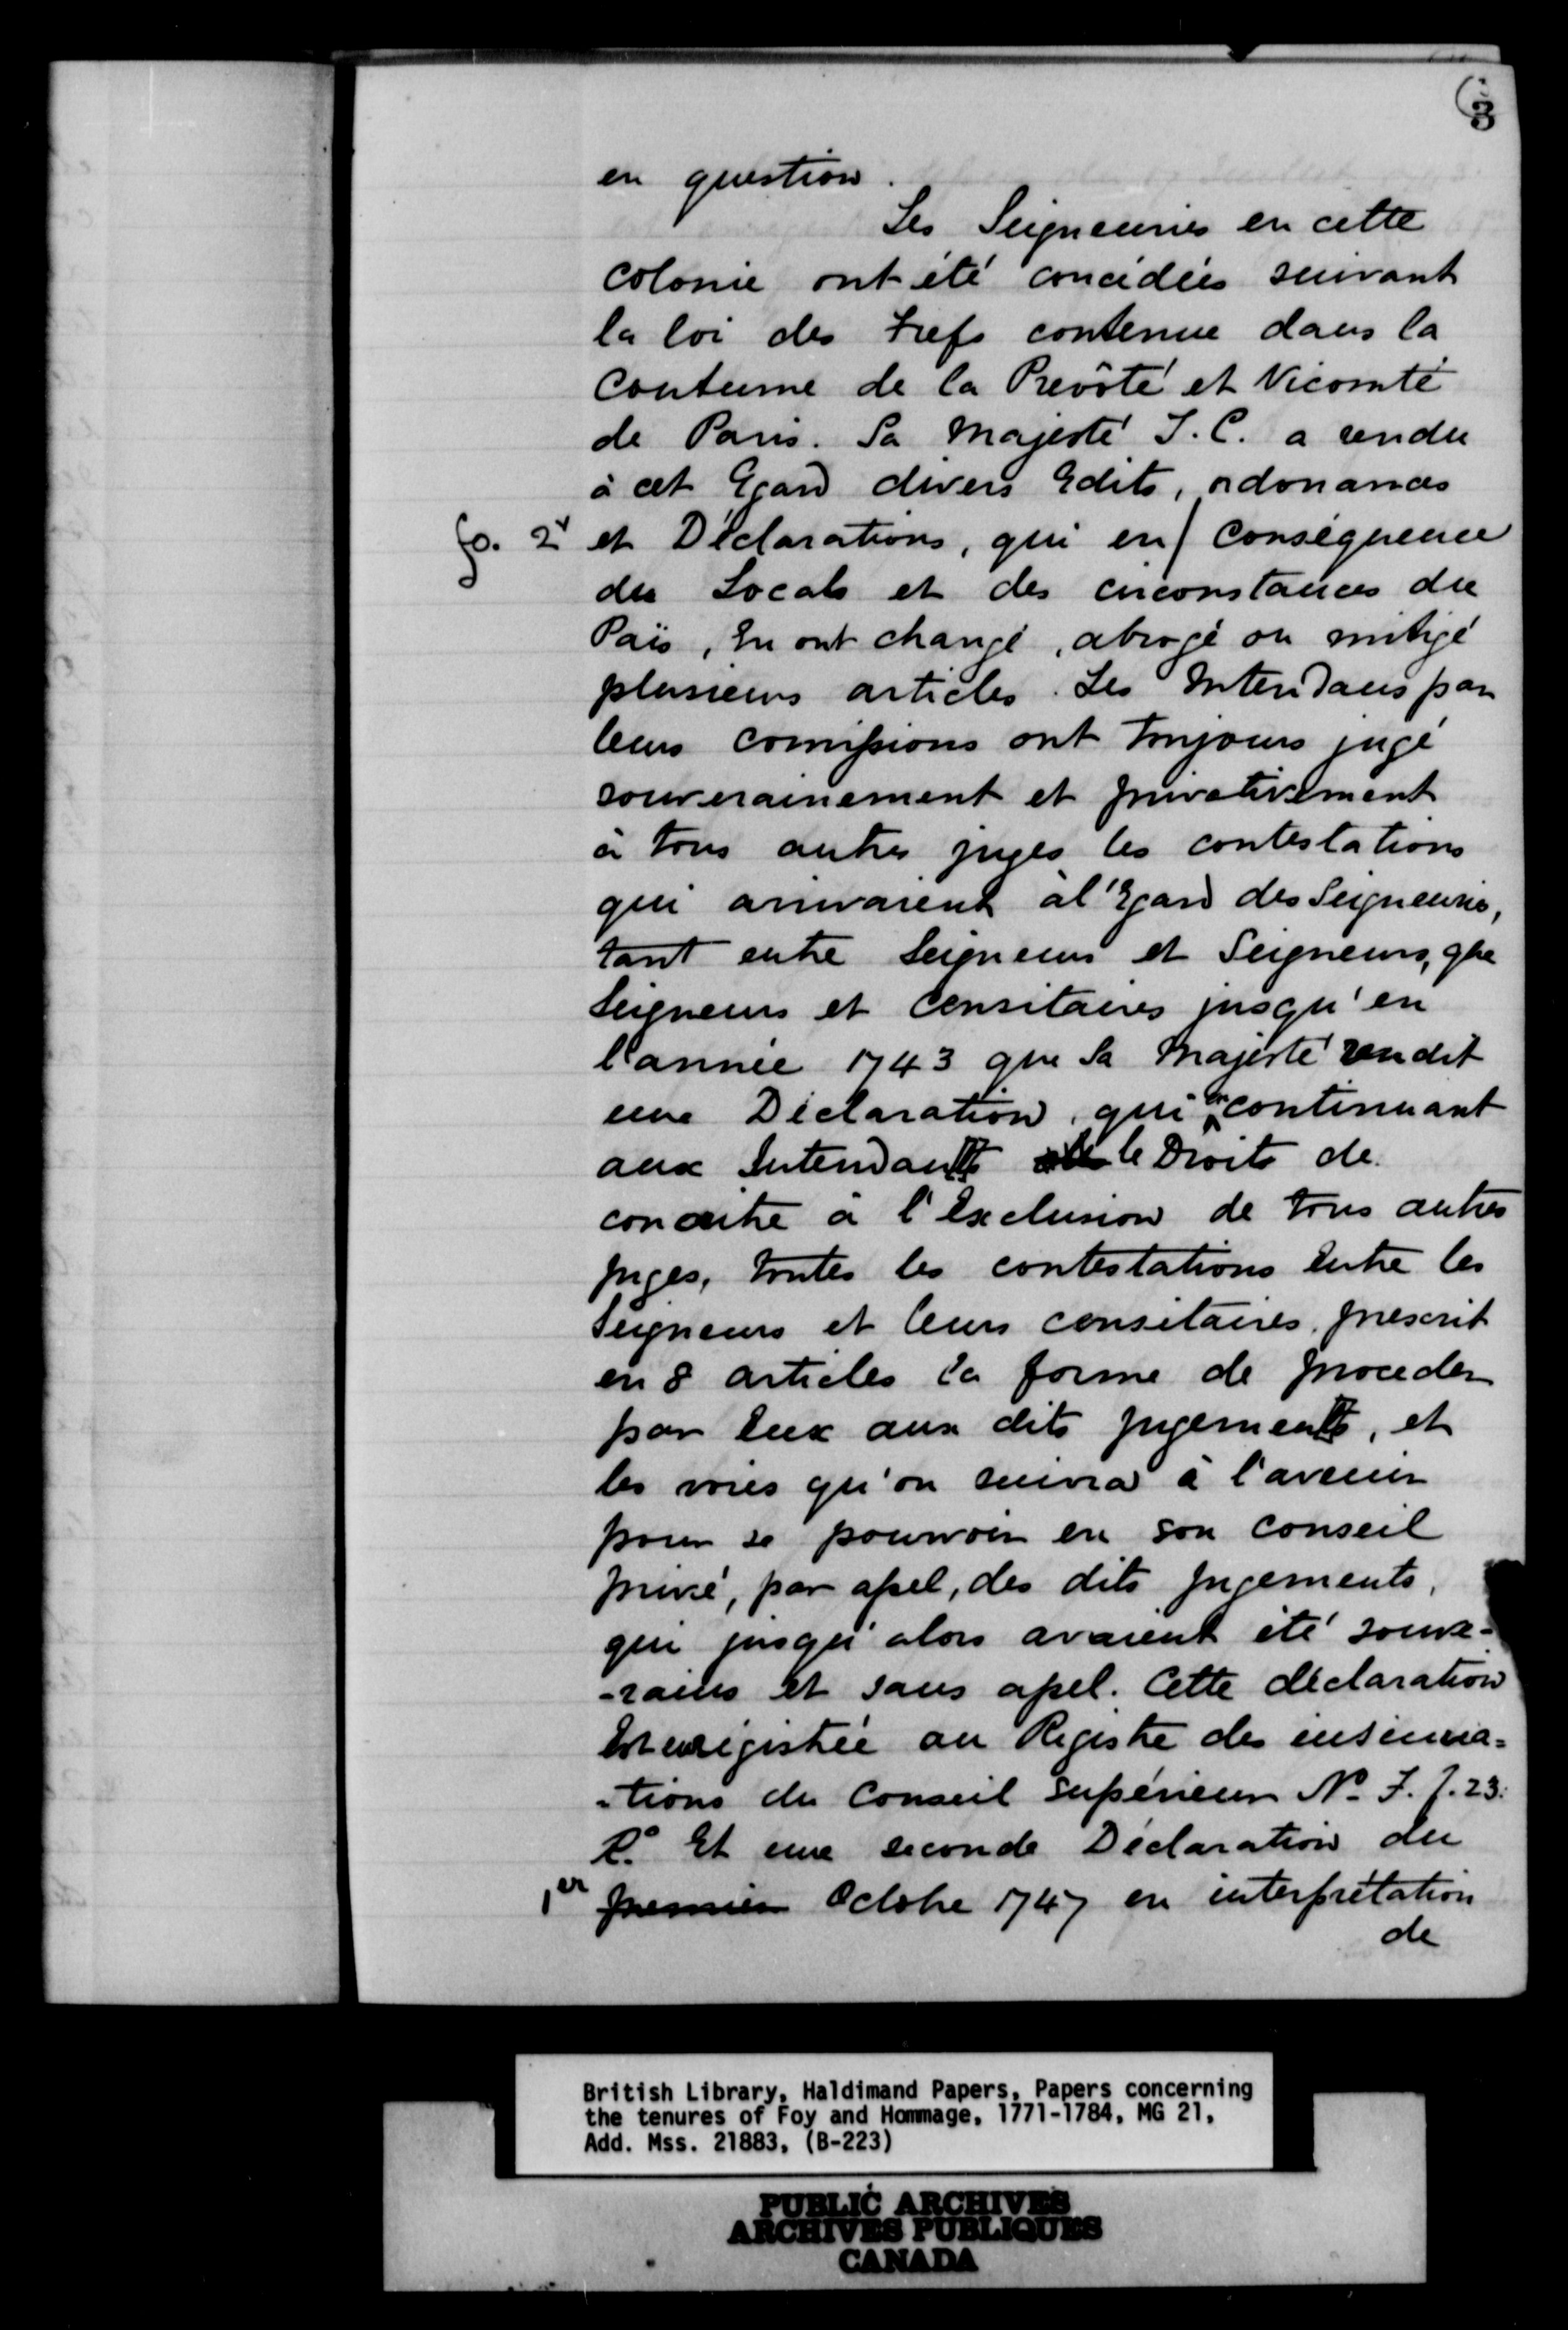 3
en question.
Les Seigneuries en cette
colonie ont été concédées suivant
la loi des Fiefs contenue dans la
Coutume de la Prevôté et Vicomté
de Paris. Sa Majesté T. C. a rendu
à cet Egard divers Edits, ordonances
fo. 2v et Déclarations, qui en/ Conséquence
du Locals et des circonstances du
Païs, En ont changé, abrogé ou mitigé
plusieurs articles. Les Intendans par
leurs comissions ont toujours jugé
souverainement et privativement
à tous autres juges les contestations
qui arrivaient à l'Egard des Seigneuries,
tant entre Seigneurs et Seigneurs, que
Seigneurs et Censitaires jusqu'en
l'année 1743 que Sa Majesté rendit
une Déclaration, qui en continuant
aux Intendants le Droits de
conaitre à l'Exclusion de tous autres
juges, toutes les contestations Entre les
Seigneurs et leurs censitaires, prescrit
en 8 articles la forme de proceder
par Eux aux dits jugements, et
les voies qu'on suivra à l'avenir
pour se pourvoir en son conseil
privé, par apel, des dits jugements,
qui jusqu'alors avaient été souve-
-rains et sans apel. Cette déclaration
Est enrégistrée au Registre des insinua=
-tions du Conseil Supérieur No. J. f. 23.
Ro. Et une seconde Déclaration du
1er premier Octobre 1747 en interprétation
de
British Library, Haldimand Papers, Papers concerning
the tenures of Foy and Hommage, 1771-1784, MG 21,
Add. Mss. 21883, (B-223)
PUBLIC ARCHIVES
ARCHIVES PUBLIQUES
CANADA